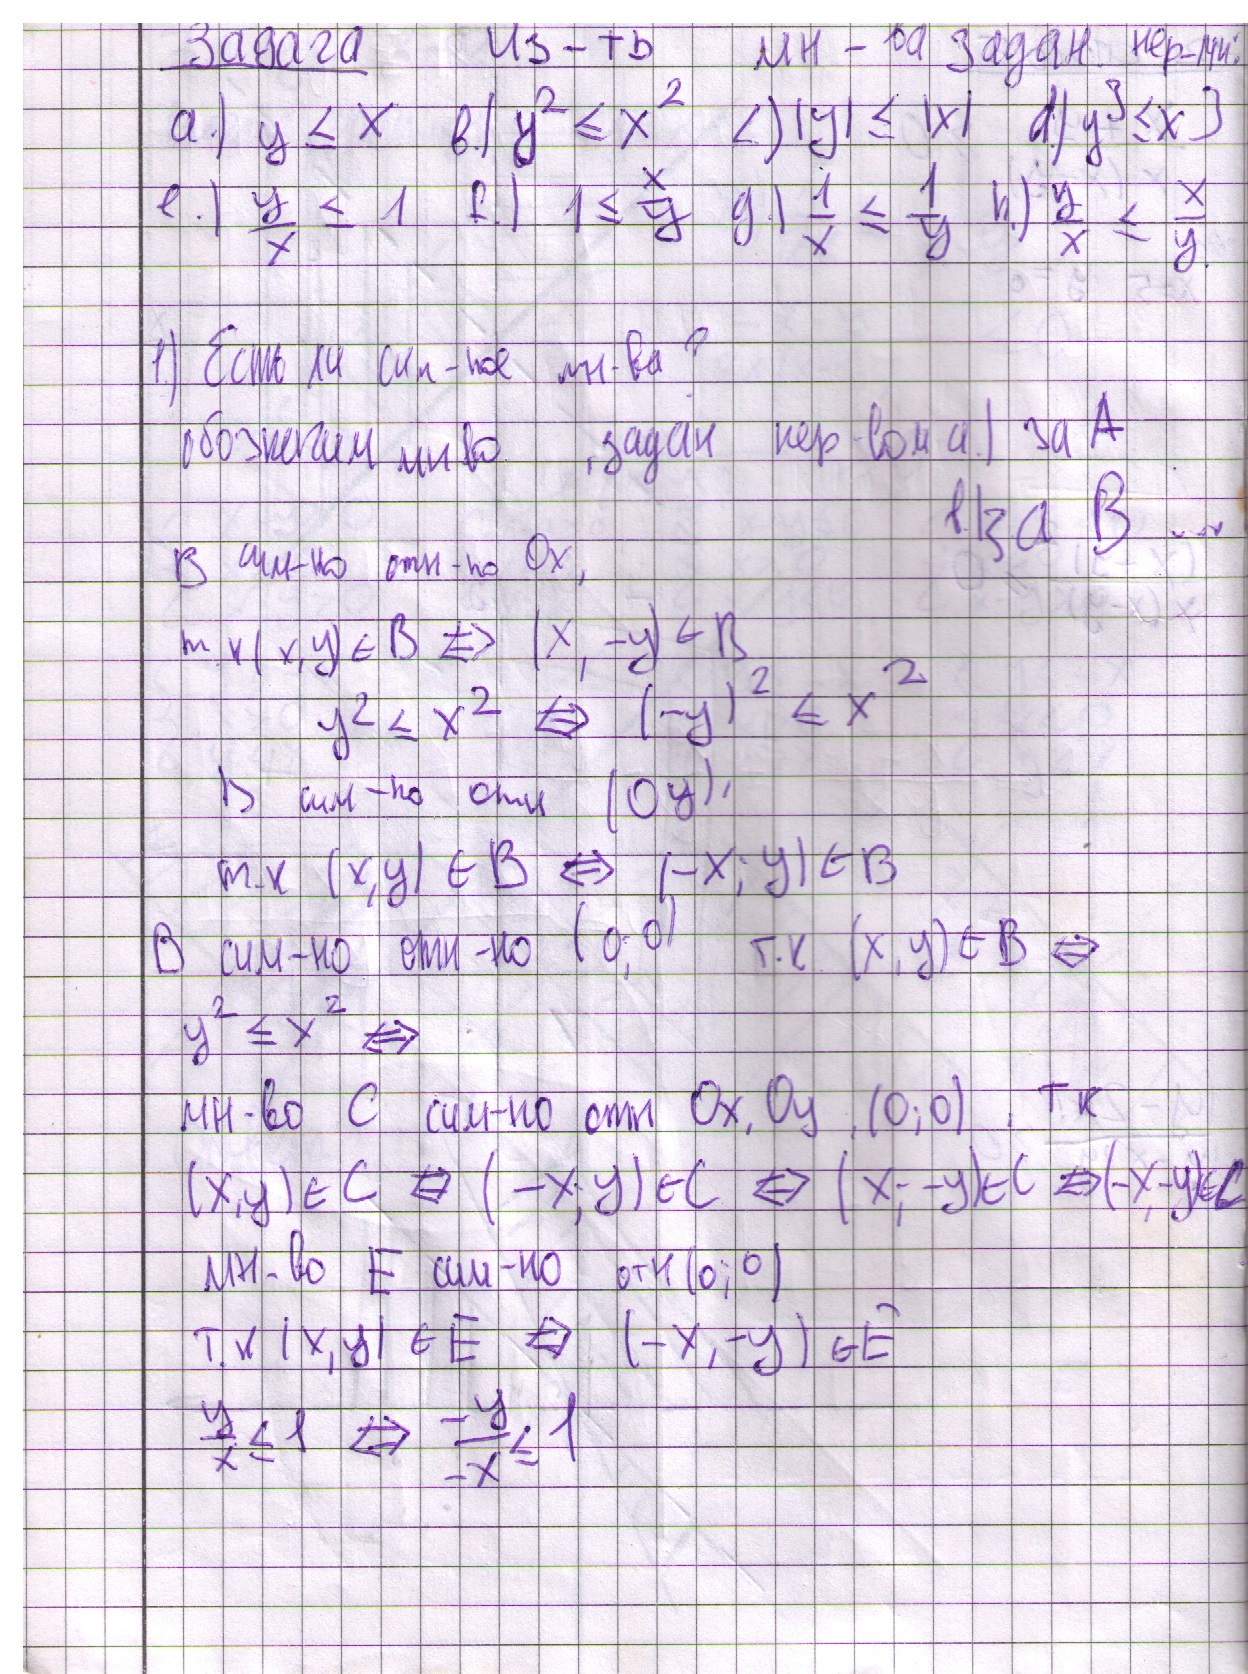 Задача Из-ть мн-ва задан. нер-ми:
a.) y ≤ x b.) y² ≤ x² c.) |y| ≤ |x| d.) y³ ≤ x³
e.) y/x ≤ 1 f.) 1 ≤ x/y g.) 1/x ≤ 1/y h.) y/x ≤ x/y
1.) Есть ли сим-ные мн-ва?
обозначим мн-во, задан нер-вом a.) за A
b.) за B ...
B сим-но отн-но Ox,
т.к (x,y) ∈ B ⇔ (x, -y) ∈ B
y² ≤ x² ⇔ (-y)² ≤ x²
B сим-но отн (Oy),
т.к (x,y) ∈ B ⇔ (-x; y) ∈ B
B сим-но отн-но (0;0) т.к. (x,y) ∈ B ⇔
y² ≤ x² ⇔
мн-во C сим-но отн Ox, Oy, (0;0), т.к
(x,y) ∈ C ⇔ (-x; y) ∈ C ⇔ (x; -y) ∈ C ⇔ (-x,-y) ∈ C
мн-во E сим-но отн (0;0)
т.к (x,y) ∈ E ⇔ (-x,-y) ∈ E
y/x ≤ 1 ⇔ -y/-x ≤ 1